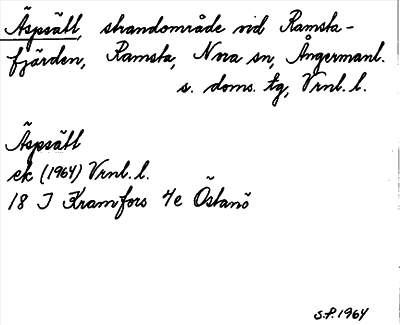 Äspsätt, strandområde vid Ramsta-
fjärden, Ramsta, Nora sn, Ångermanl.
s. doms. tg, Vrnl. l.
Äspsätt
ek (1964) Vrnl. l.
18 I Kramfors 4e Östanö
S.P. 1964